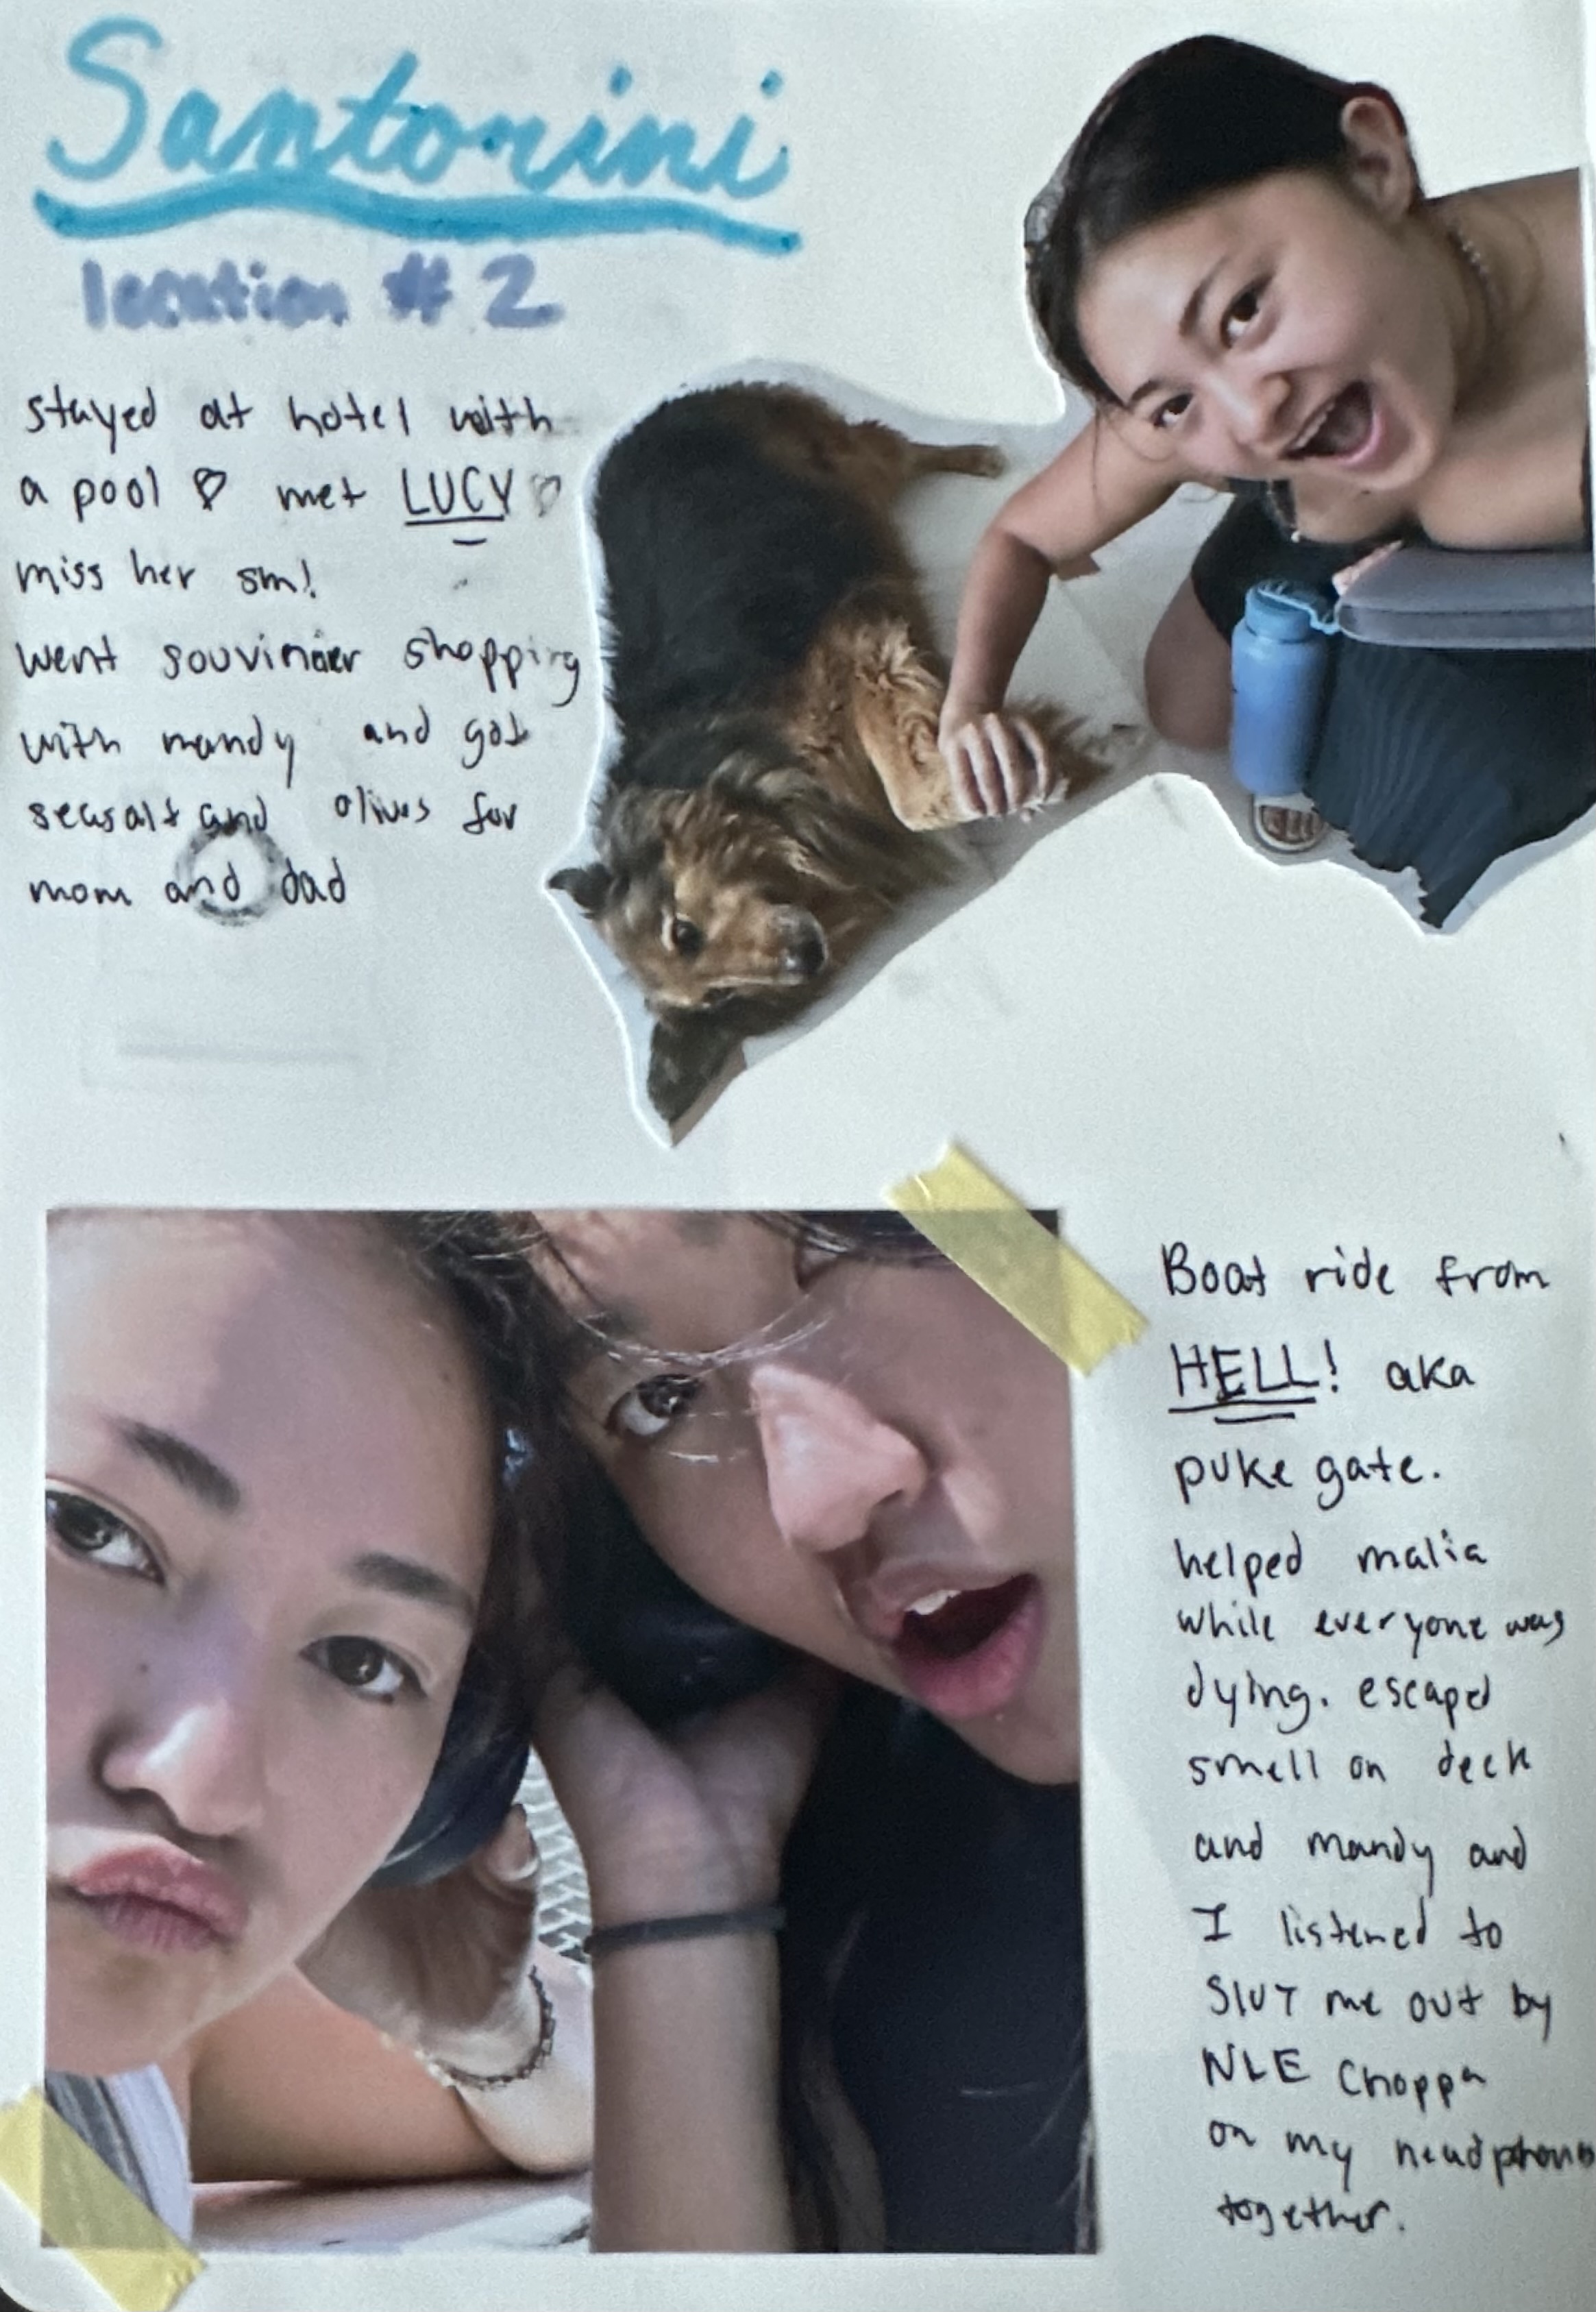 Santorini
location # 2
stayed at hotel with
a pool ♡ met LUCY ♡
miss her sm!
went souvinier shopping
with mandy and got
seasalt and olives for
mom and dad
Boat ride from
HELL! aka
puke gate.
helped malia
while everyone was
dying. escaped
smell on deck
and mandy and
I listened to
SlUT me out by
NLE Choppa
on my headphones
together.